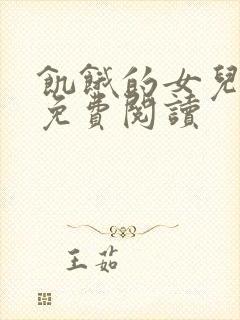 飢餓的女兒
免費閱讀
王茹